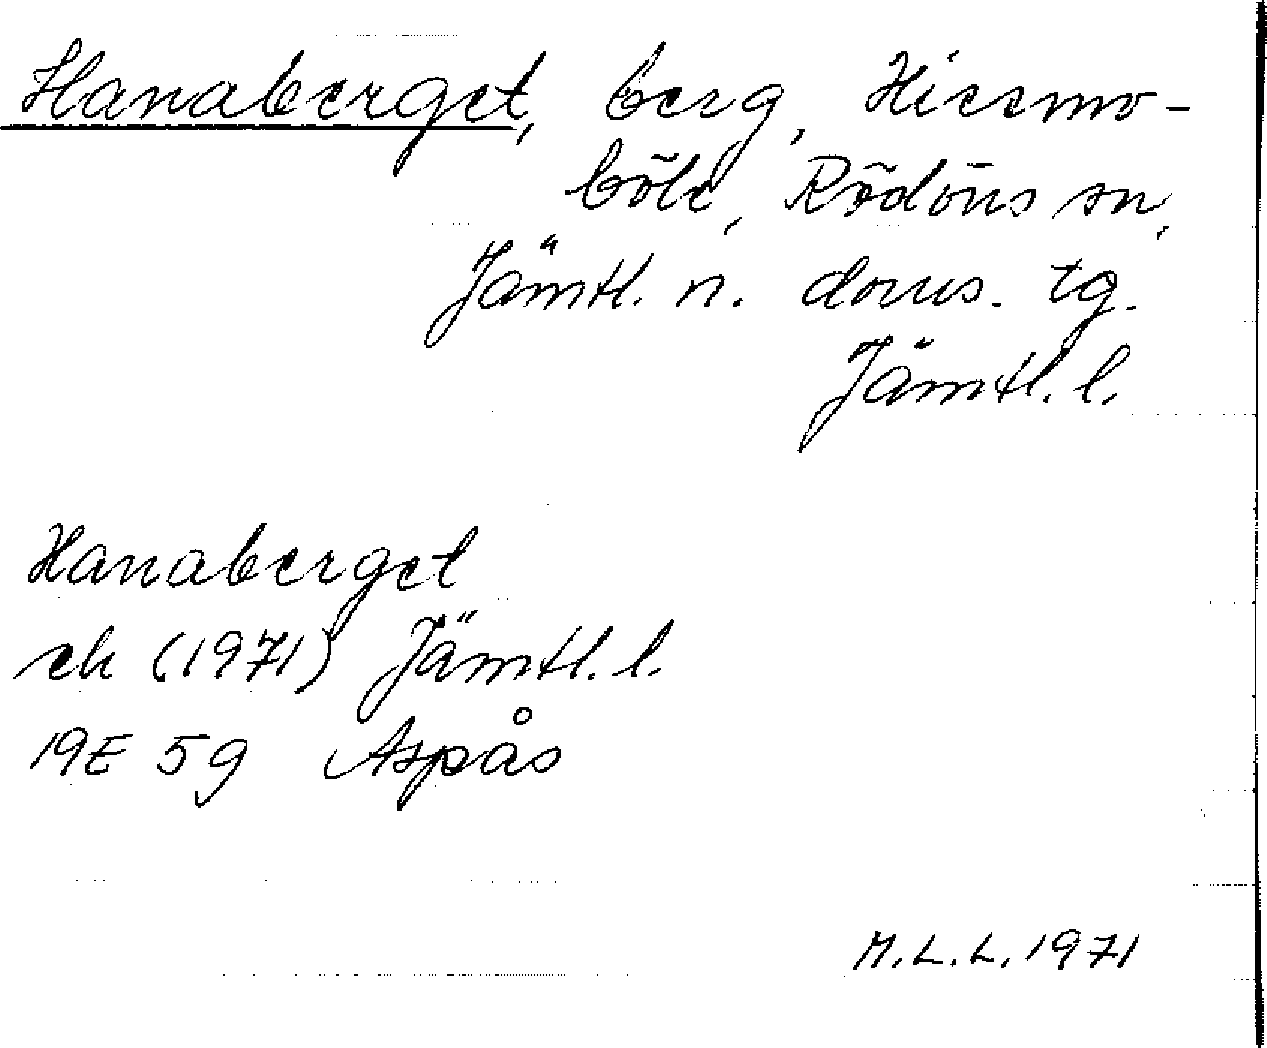 Hanaberget, berg, Hissmo-
böle, Rödöns sn,
Jämtl. n. doms. tg.
Jämtl. l.
Hanaberget
ek (1971) Jämtl. l.
19E 5g Aspås
M.L.L. 1971